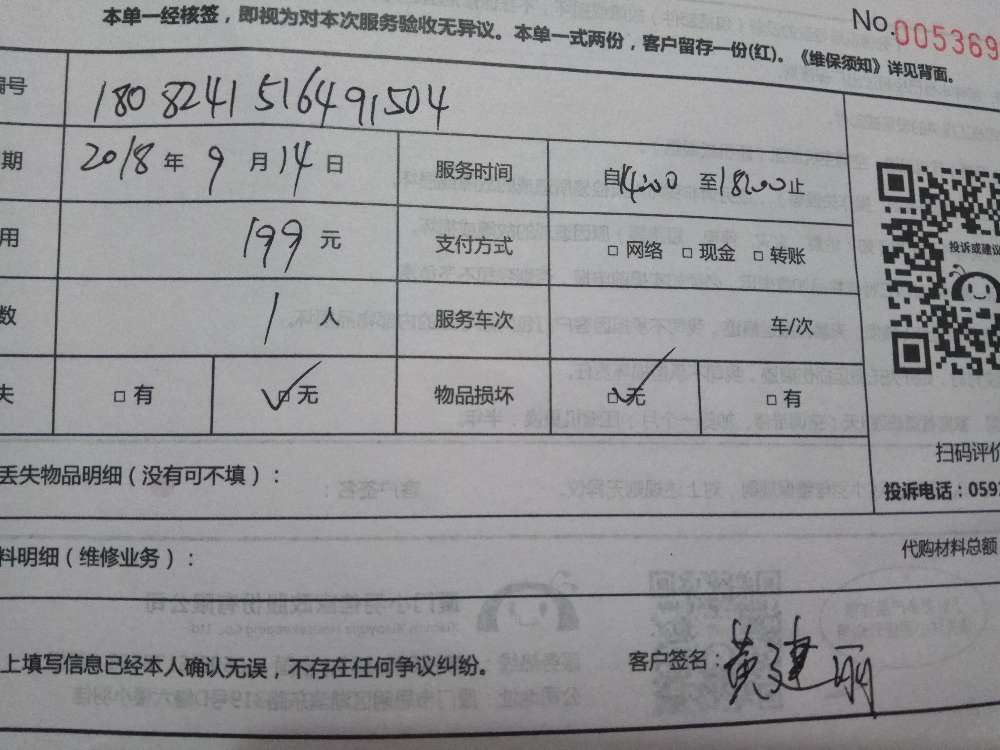 本单一经核签，即视为对本次服务验收无异议。本单一式两份，客户留存一份(红)。《维保须知》详见背面。
No.005369
编号 180824151649 1504
期 2018年9月14日 服务时间 自14:00至18:00止
用 199元 支付方式 □网络 □现金 □转账
数 1人 服务车次 车/次
失 □有 ☑无 物品损坏 ☑无 □有
投诉或建议
扫码评价
投诉电话：059
丢失物品明细（没有可不填）：
料明细（维修业务）：
代购材料总额
上填写信息已经本人确认无误，不存在任何争议纠纷。
客户签名：黄建丽